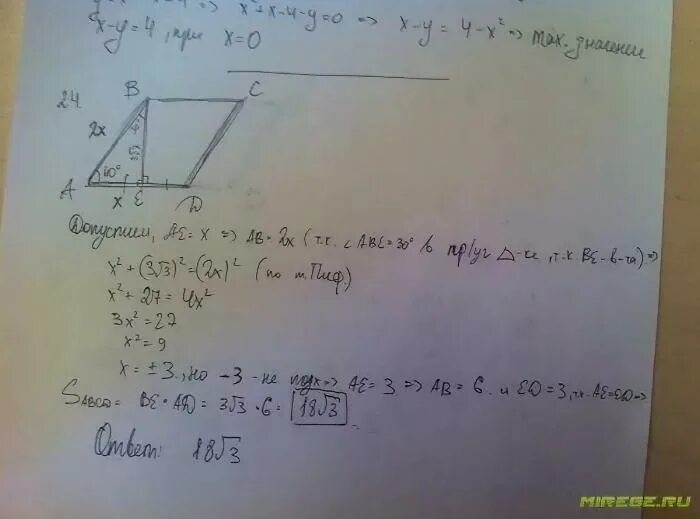 x² + x - 4 - y = 0 => x - y = 4 - x² => max. значение
x - y = 4, при x = 0
24.
B
C
2x
3√3
60°
A
x
E
D
Допустим, AE = x => AB = 2x (т.к. ∠ABE = 30° в пр/уг △-ке, т.к. BE - в-та) =>
x² + (3√3)² = (2x)² (по т. Пиф.)
x² + 27 = 4x²
3x² = 27
x² = 9
x = ± 3, но -3 - не подх => AE = 3 => AB = 6. и ED = 3, т.к. AE = ED =>
S ABCD = BE · AD = 3√3 · 6 = 18√3
Ответ: 18√3
MIREGE.RU